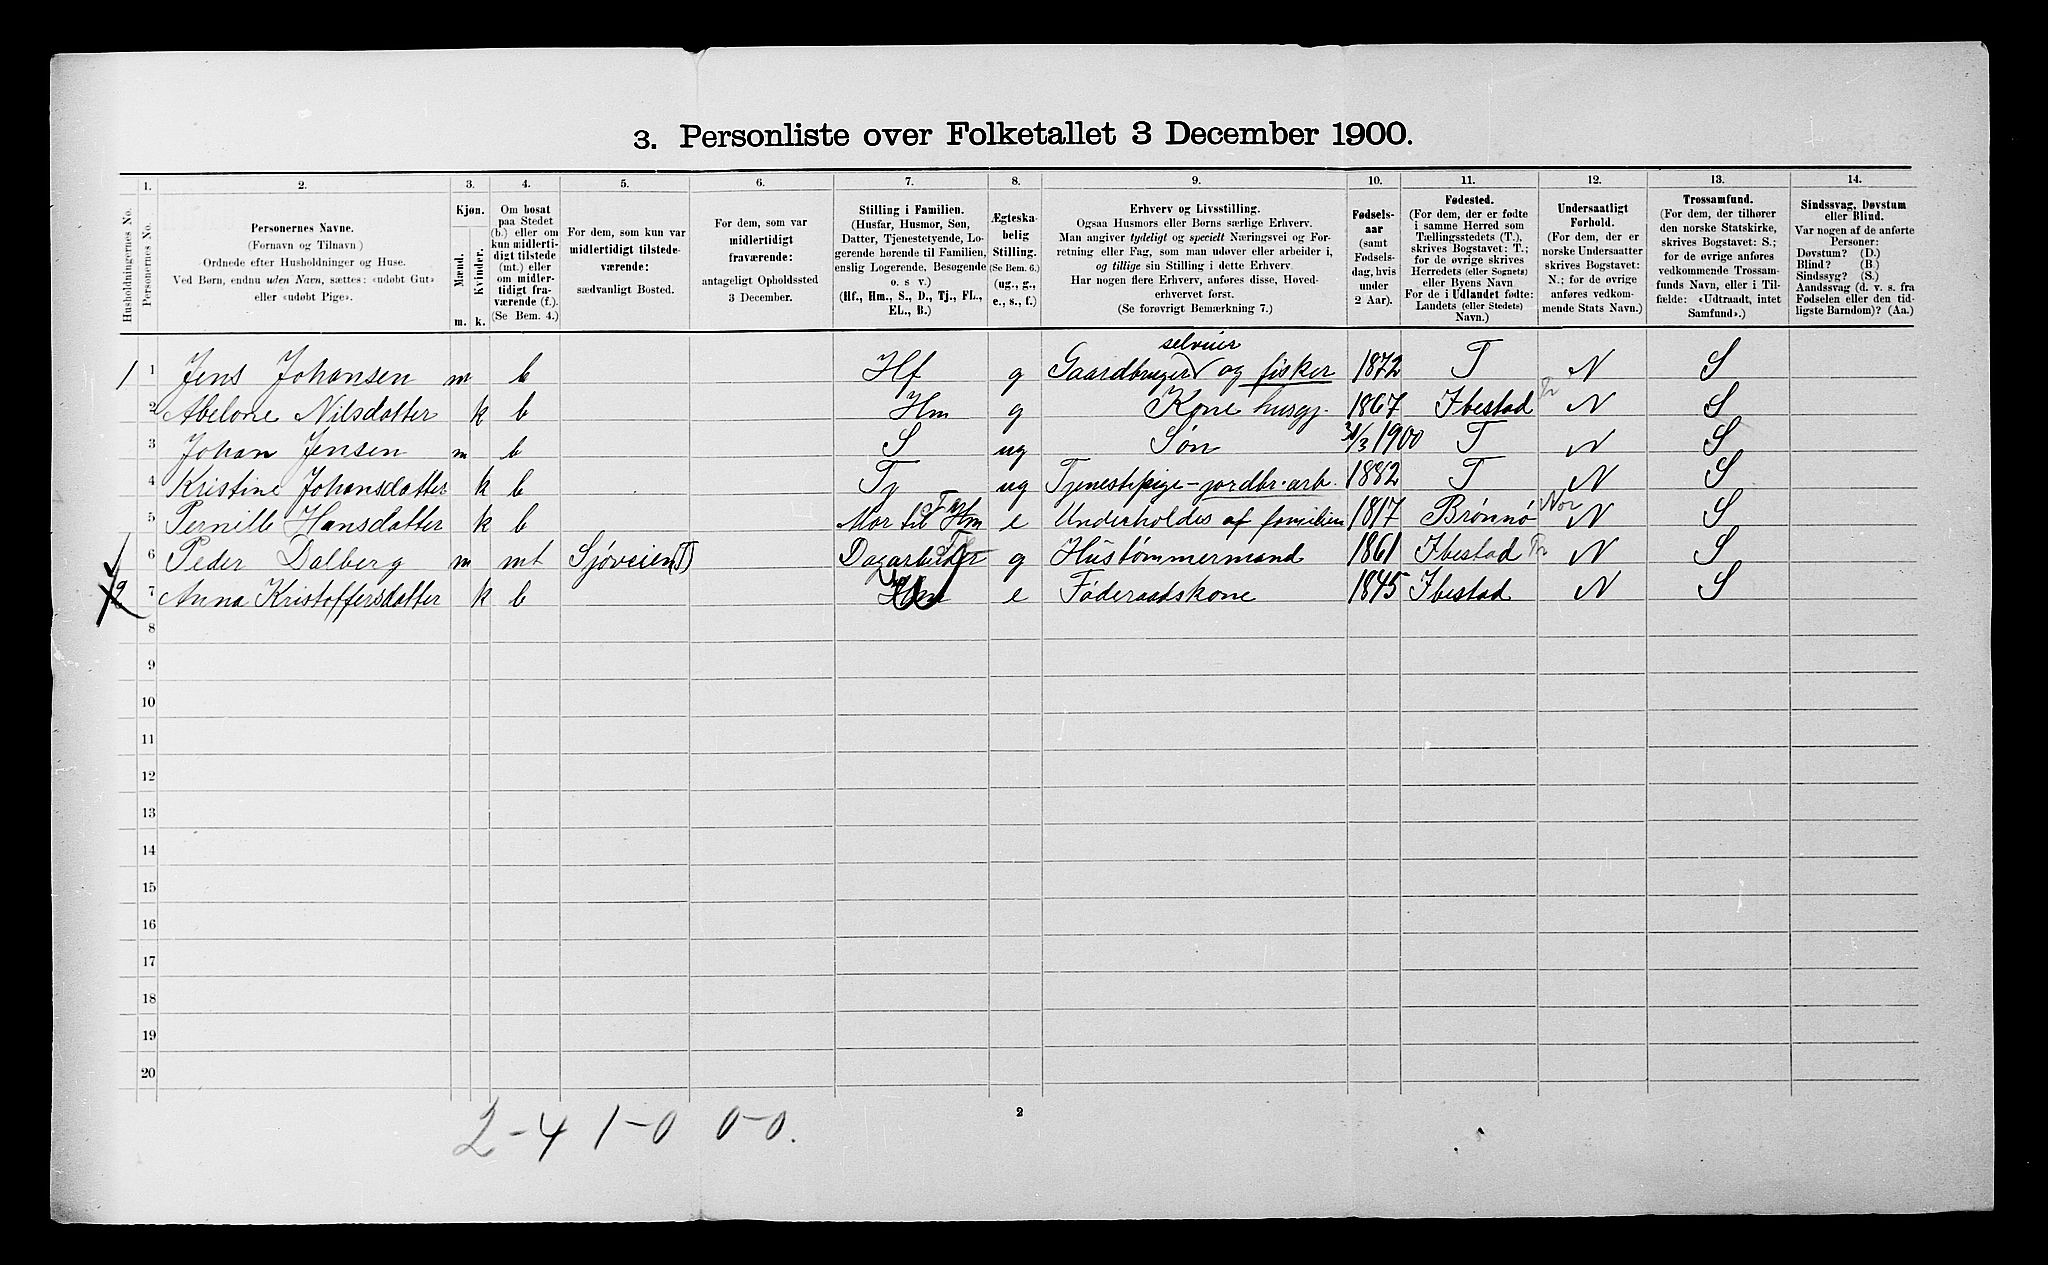 3. Personliste over Folketallet 3 December 1900.
1. 2. 3. 4. 5. 6. 7. 8. 9. 10. 11. 12. 13. 14.
Husholdningernes No.
Personernes No.
Personernes Navne.
(Fornavn og Tilnavn)
Ordnede efter Husholdninger og Huse.
Ved Børn, endnu uden Navn, sættes: «udøbt Gut»
eller «udøbt Pige».
Kjøn.
Mænd. Kvinder.
m. k.
Om bosat
paa Stedet
(b.) eller om
kun midlerti-
digt tilstede
(mt.) eller
om midler-
tidigt fra-
værende (f.).
(Se Bem. 4.)
For dem, som kun var
midlertidigt tilstede-
værende:
sædvanligt Bosted.
For dem, som var
midlertidigt
fraværende:
antageligt Opholdssted
3 December.
Stilling i Familien.
(Husfar, Husmor, Søn,
Datter, Tjenestetyende, Lo-
gerende hørende til Familien,
enslig Logerende, Besøgende
o. s v.)
(Hf., Hm., S., D., Tj., FL.,
EL., B.)
Ægteska-
belig
Stilling.
(Se Bem. 6.)
(ug., g.,
e., s., f.)
Erhverv og Livsstilling.
Ogsaa Husmors eller Børns særlige Erhverv.
Man angiver tydeligt og specielt Næringsvei og For-
retning eller Fag, som man udøver eller arbeider i,
og tillige sin Stilling i dette Erhverv.
Har nogen flere Erhverv, anføres disse, Hoved-
erhvervet først.
(Se forøvrigt Bemærkning 7.)
Fødsels-
aar
(samt
Fødsels-
dag, hvis
under
2 Aar).
Fødested.
(For dem, der er fødte
i samme Herred som
Tællingsstedets (T.),
skrives Bogstavet: T.;
for de øvrige skrives
Herredets (eller Sognets)
eller Byens Navn
For de i Udlandet fødte:
Landets (eller Stedets)
Navn.)
Undersaatligt
Forhold.
(For dem, der er
norske Undersaatter
skrives Bogstavet:
N.; for de øvrige
anføres vedkom-
mende Stats Navn.)
Trossamfund.
(For dem, der tilhører
den norske Statskirke,
skrives Bogstavet: S.;
for de øvrige anføres
vedkommende Trossam-
funds Navn, eller i Til-
fælde: «Udtraadt, intet
Samfund».)
Sindssvag, Døvstum
eller Blind.
Var nogen af de anførte
Personer:
Døvstum? (D.)
Blind? (B.)
Sindssyg? (S.)
Aandssvag (d. v. s. fra
Fødselen eller den tid-
ligste Barndom)? (Aa.)
selveier
1 1 Jens Johansen m b Hf g Gaardbruger og fisker 1872 T N S
2 Abelone Nilsdatter k b Hm g Kone husgj. 1867 Ibestad Tr N S
3 Johan Jensen m b S ug Søn 31/3 1900 T N S
4 Kristine Johansdatter k b Tj ug Tjenestepige - jordbr. arb. 1882 T N S
5 Pernille Hansdatter k b Mor til Hm e Underholdes af familien 1817 Brønnø Nor N S
6 Peder Dalberg m mt Sjøveien (T) Dagarbeider g Hustømmermand 1861 Ibestad Tr N S
2 7 Anna Kristoffersdatter k b Hm e Føderaadskone 1845 Ibestad N S
8
9
10
11
12
13
14
15
16
17
18
19
20
2
2-4 1-0 0-0.